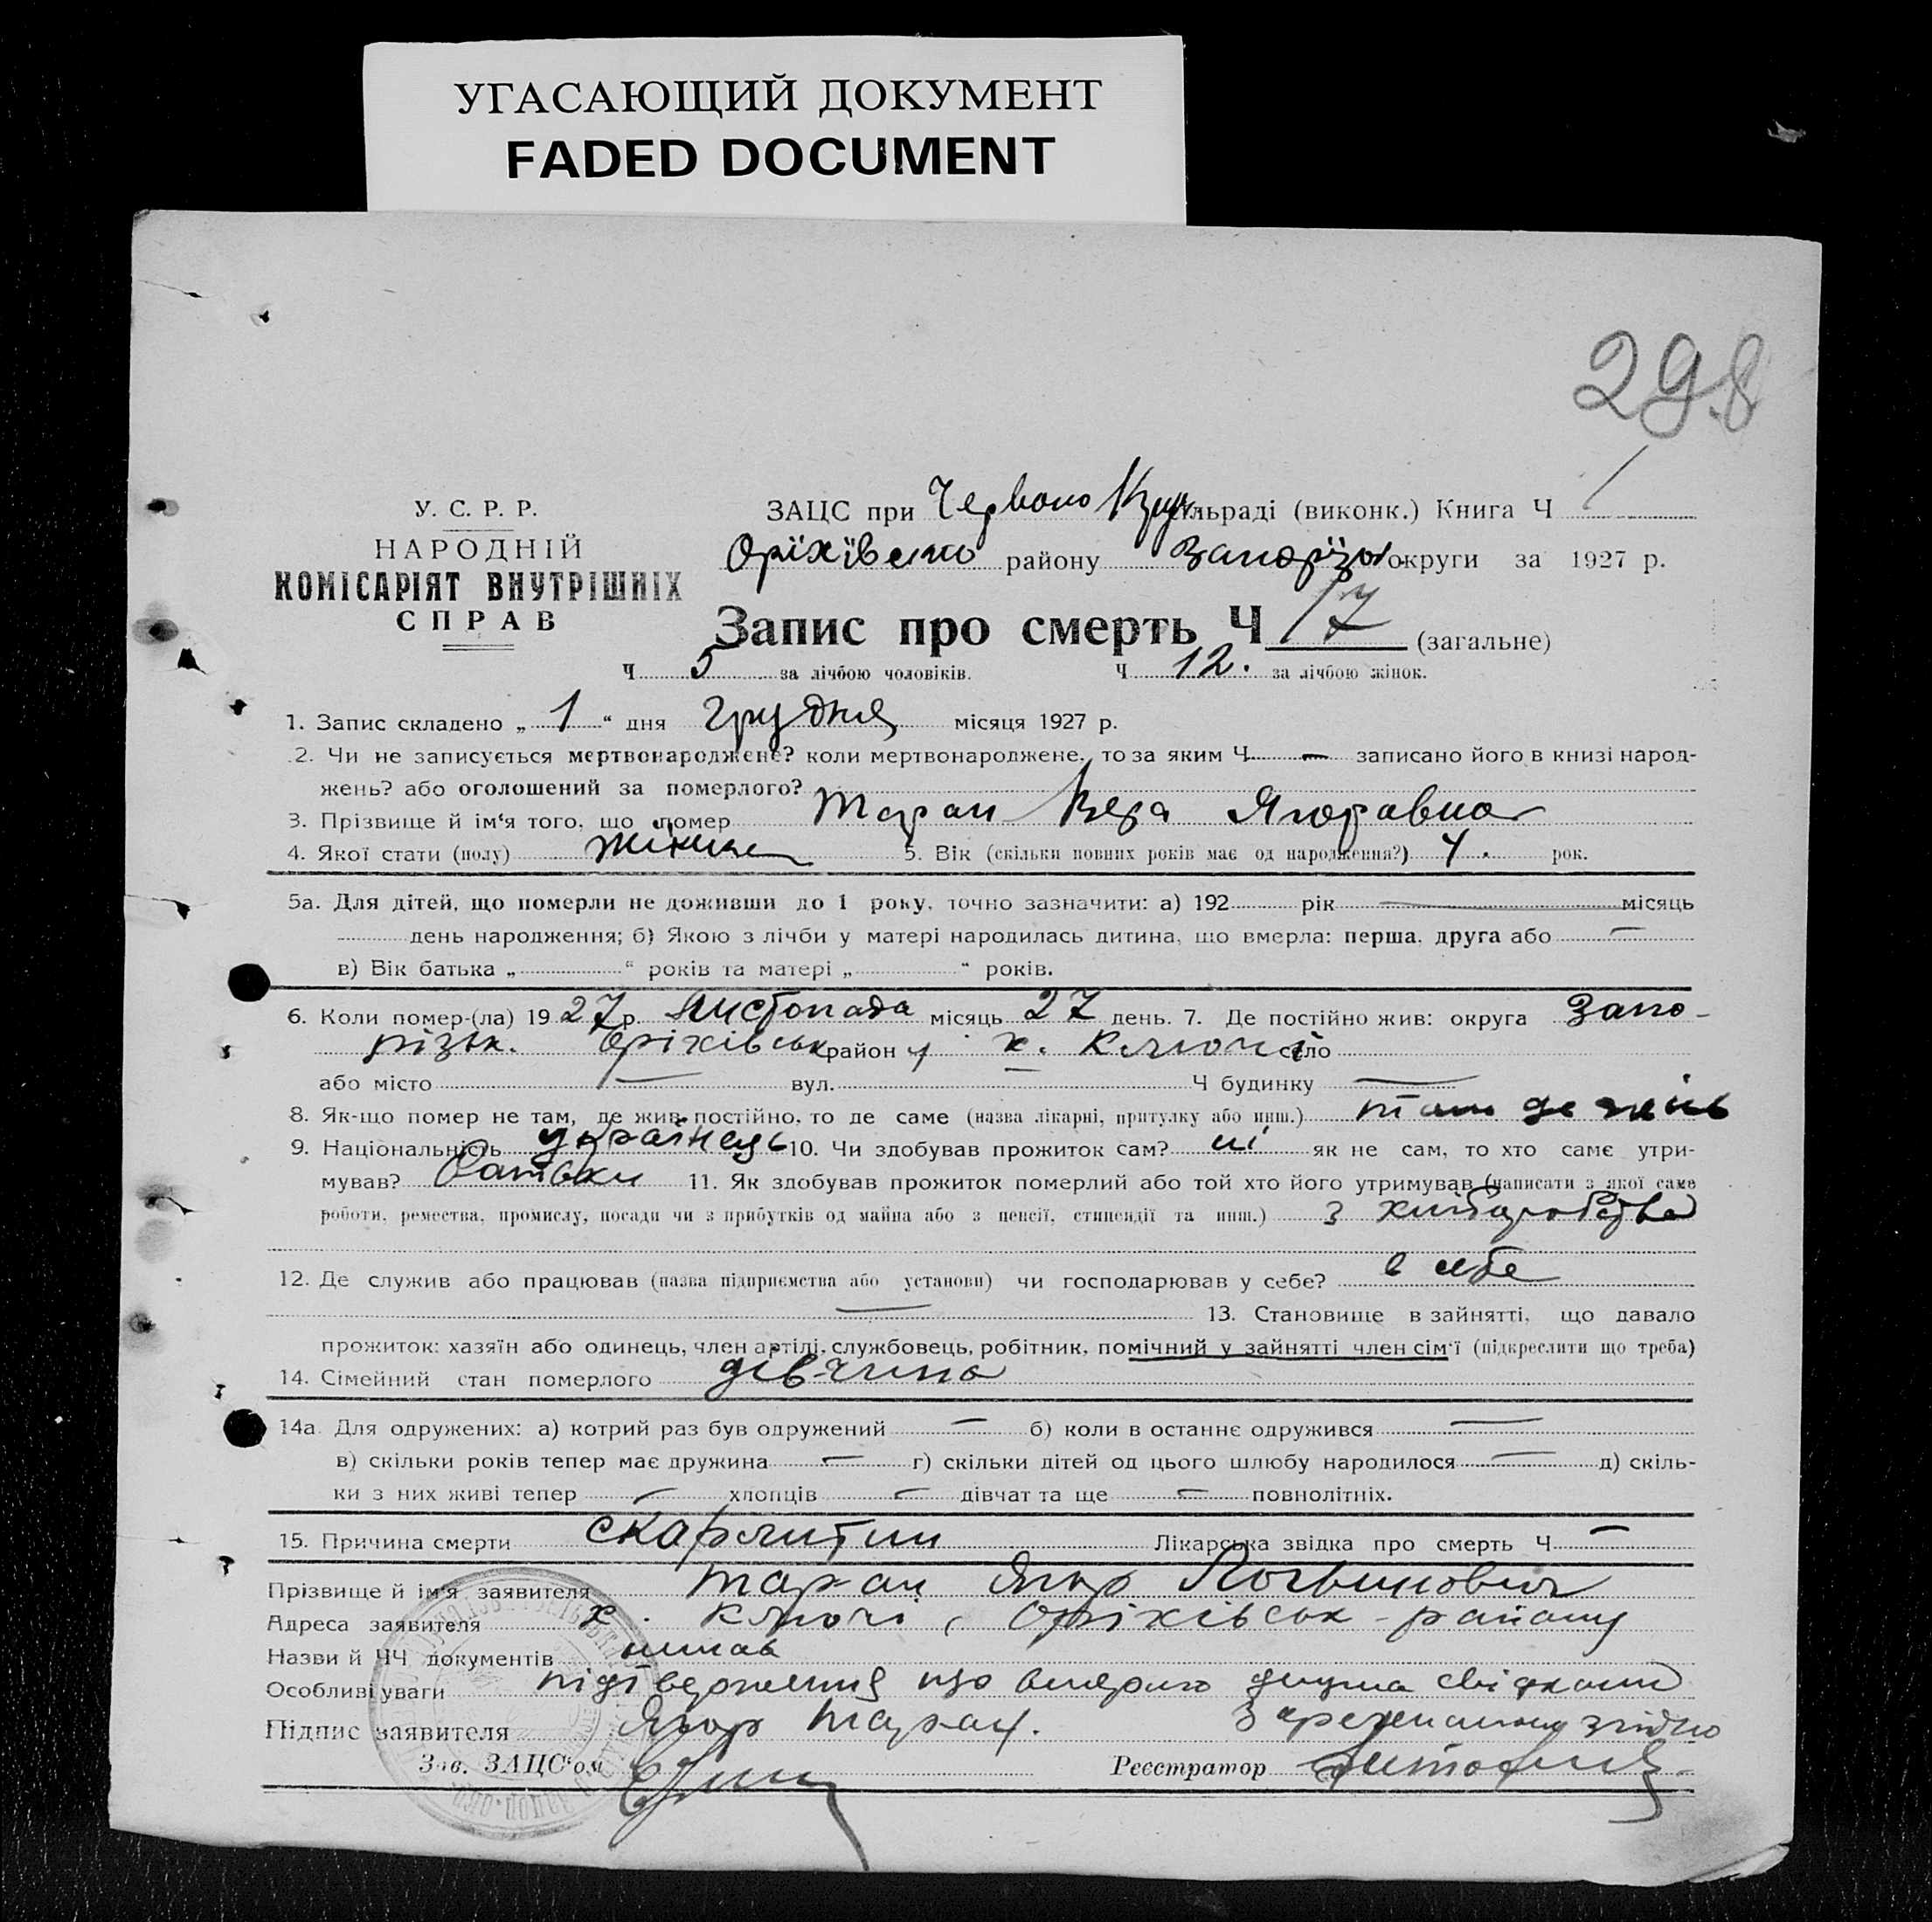 УГАСАЮЩИЙ ДОКУМЕНТ
FADED DOCUMENT
298
У. С. Р. Р.
НАРОДНІЙ
КОМІСАРІЯТ ВНУТРІШНІХ
СПРАВ
ЗАЦС при Червоно Крил. сільраді (виконк.) Книга Ч 1
Оріхівсько району Запоріз. округи за 1927 р.
Запис про смерть Ч 17 (загальне)
Ч 5 за лічбою чоловіків. Ч 12. за лічбою жінок.
1. Запис складено „ 1 “ дня Грудня місяця 1927 р.
2. Чи не записується мертвонароджене? коли мертвонароджене, то за яким Ч — записано його в книзі народ-
жень? або оголошений за померлого?
3. Прізвище й ім‘я того, що помер Таран Вера Ягоравна
4. Якої статі (полу) жіноча 5. Вік (скільки повних років має од народження?) 4. рок.
5а. Для дітей, що померли не доживши до 1 року, точно зазначити: а) 192 рік — місяць
день народження; б) Якою з лічби у матері народилась дитина, що вмерла: перша, друга або —
в) Вік батька „ “ років та матері „ “ років.
6. Коли помер-(ла) 1927 р. Листопада місяць 27 день. 7. Де постійно жив: округа Запо-
різьк. Оріхівськ район у х. Ключі село
або місто — вул. Ч будинку —
8. Як-що помер не там, де жив постійно, то де саме (назва лікарні, притулку або инш.) там де жив
9. Національність українець 10. Чи здобував прожиток сам? ні як не сам, то хто саме утри-
мував? Батьки 11. Як здобував прожиток померлий або той хто його утримував (написати з якої саме
роботи, ремества, промислу, посади чи з прибутків од майна або з пенсії, стипендії та инш.) з хліборобства
12. Де служив або працював (назва підприємства або установи) чи господарював у себе? в себе
— 13. Становище в зайнятті, що давало
прожиток: хазяїн або одинець, член артілі, службовець, робітник, помічний у зайнятті член сім‘ї (підкреслити що треба)
14. Сімейний стан померлого дівчина
14а. Для одружених: а) котрий раз був одружений — б) коли в останнє одружився —
в) скільки років тепер має дружина — г) скільки дітей од цього шлюбу народилося — д) скіль-
ки з них живі тепер — хлопців — дівчат та ще — повнолітніх.
15. Причина смерти скарлитин Лікарська звідка про смерть Ч —
Прізвище й ім‘я заявителя Таран Ягор Логвинович
Адреса заявителя х. Ключі, Оріхівськ району
Назви й ЧЧ документів нимав
Особливі уваги підтвдження що вмерло дитина свідками
Підпис заявителя Ягор Таран.
Зав. ЗАЦС‘ом Реєстратор